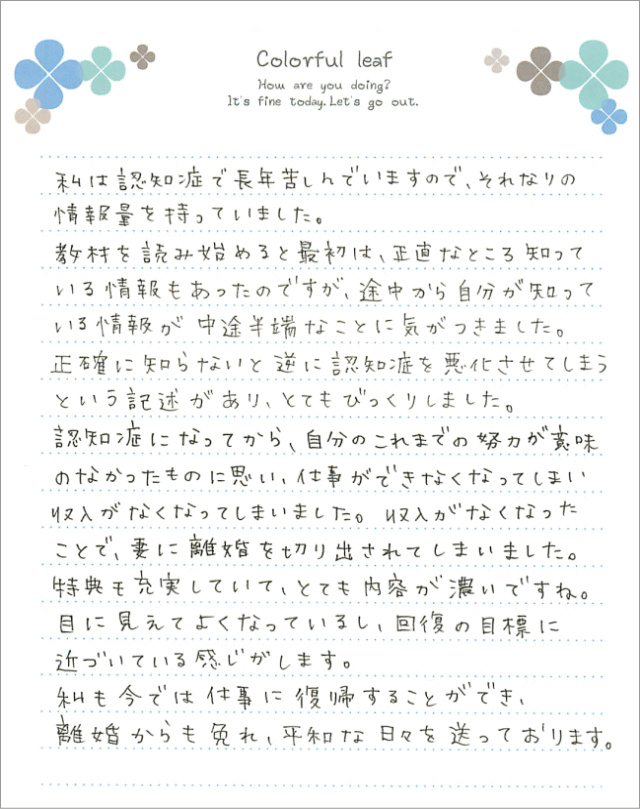 Colorful leaf
How are you doing?
It's fine today. Let's go out.
私は認知症で長年苦しんでいますので、それなりの
情報量を持っていました。
教材を読み始めると最初は、正直なところ知って
いる情報もあったのですが、途中から自分が知って
いる情報が中途半端なことに気がつきました。
正確に知らないと逆に認知症を悪化させてしまう
という記述があり、とてもびっくりしました。
認知症になってから、自分のこれまでの努力が意味
のなかったものに思い、仕事ができなくなってしまい
収入がなくなってしまいました。収入がなくなった
ことで、妻に離婚を切り出されてしまいました。
特典も充実していて、とても内容が濃いですね。
目に見えてよくなっているし、回復の目標に
近づいている感じがします。
私も今では仕事に復帰することができ、
離婚からも免れ、平和な日々を送っております。